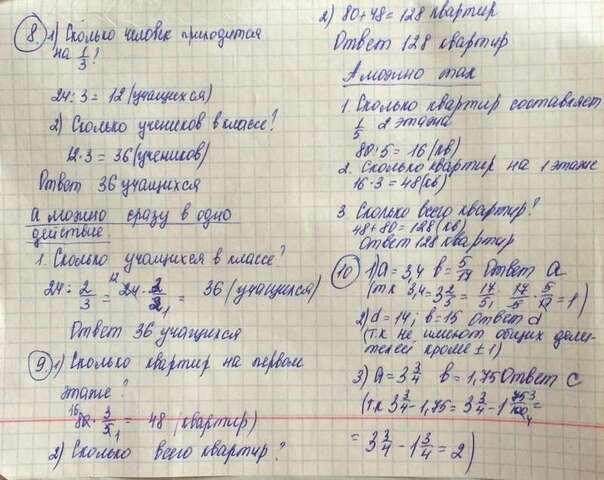 8. 1) Сколько человек приходится
на 1/3?
24:3 = 12 (учащихся)
2) Сколько учеников в классе?
12·3 = 36 (учеников)
Ответ 36 учащихся
А можно сразу в одно
действие.
1. Сколько учащихся в классе?
24 : 2/3 = 12 24 · 3/2 1 = 36 (учащихся)
Ответ 36 учащихся
9. 1) Сколько квартир на первом
этаже?
16 80 · 3/5 1 = 48 (квартир)
2) Сколько всего квартир?
2) 80+48 = 128 квартир
Ответ 128 квартир
А можно так
1. Сколько квартир составляет
1/5 2 этажа
80:5 = 16 (кв)
2. Сколько квартир на 1 этаже
16·3 = 48 (кв)
3. Сколько всего квартир?
48+80 = 128 (кв)
Ответ 128 квартир
10 1) a = 3,4 b = 5/17 Ответ a
(тк 3,4 = 3 2/5 = 17/5, 17/5 · 5/17 = 1)
2) d = 14; b = 15 Ответ d
(т.к не имеют общих дели-
телей кроме ±1)
3) a = 3 3/4 b = 1,75 Ответ c
(т.к 3 3/4 - 1,75 = 3 3/4 - 1 75/100 3/4 =
= 3 3/4 - 1 3/4 = 2)